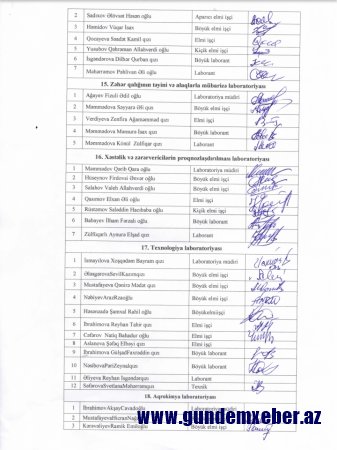 2 Sadıxov Ələvan Həsən oğlu Aparıcı elmi işçi
3 Həmidov Vüqar İsax Böyük elmi işçi
4 Qocayeva Səadət Kamil qızı Elmi işçi
5 Yusubov Qəhrəman Allahverdi oğlu Kiçik elmi işçi
6 İsgəndərova Dilbər Qurban qızı Böyük laborant
7 Məhərrəmov Pəhlivan Əli oğlu Laborant
15. Zəhər qalığının təyini və alaqlarla mübarizə laboratoriyası
1 Ağayev Fizuli Ədil oğlu Laboratoriya müdiri
2 Məmmədova Səyyarə Əli qızı Böyük elmi işçi
3 Verdiyeva Zenfira Ağaməmməd qızı Elmi işçi
4 Məmmədova Mənsurə İsax qızı Böyük laborant
5 Məmmədova Könül Zülfüqar qızı Laborant
16. Xəstəlik və zərərvericilərin proqnozlaşdırılması laboratoriyası
1 Məmmədov Qərib Qara oğlu Laboratoriya müdiri
2 Hüseynov Firdovsi Ənvər oğlu Böyük elmi işçi
3 Salahov Valeh Allahverdi oğlu Böyük elmi işçi
4 Qasımov Elxan Əli oğlu Elmi işçi
5 Rüstəmov Sələddin Hacıbaba oğlu Kiçik elmi işçi
6 Babayev İlham Fərzalı oğlu Böyük laborant
7 Zülfüqarlı Aynurə Elşad qızı Laborant
17. Texnologiya laboratoriyası
1 İsmayılova Xoşqədəm Bayram qızı Laboratoriya müdiri
2 ƏləsgərovaSevilKərimqızı Böyük elmi işçi
3 Mustafayeva Qənirə Mədət qızı Böyük elmi işçi
4 NəbiyevArazRzaoğlu Böyük elmi işçi
5 Həsənzadə Şəmsəl Rahil oğlu Böyükelmiişçi
6 İbrahimova Reyhan Tahir qızı Elmi işçi
7 Cəfərov Natiq Bahadur oğlu Elmi işçi
8 Aslanova Şəfəq Elbəyi qızı Elmi işçi
9 İbrahimova GülşadFəxrəddin qızı Böyük laborant
10 NəsibovaPəriZeynalqızı Böyük laborant
11 Əliyeva Reyhan İsgəndərqızı Laborant
12 SəfərovaSvetlanaMəhərrəmqızı Texnik
18. Aqrokimya laboratoriyası
1 İbrahimovAkşəyCavadoğlu Laboratoriya müdiri
3 KərəvəliyevRamik Emiloğlu Böyük elmi işçi
www.gundemxeber.az